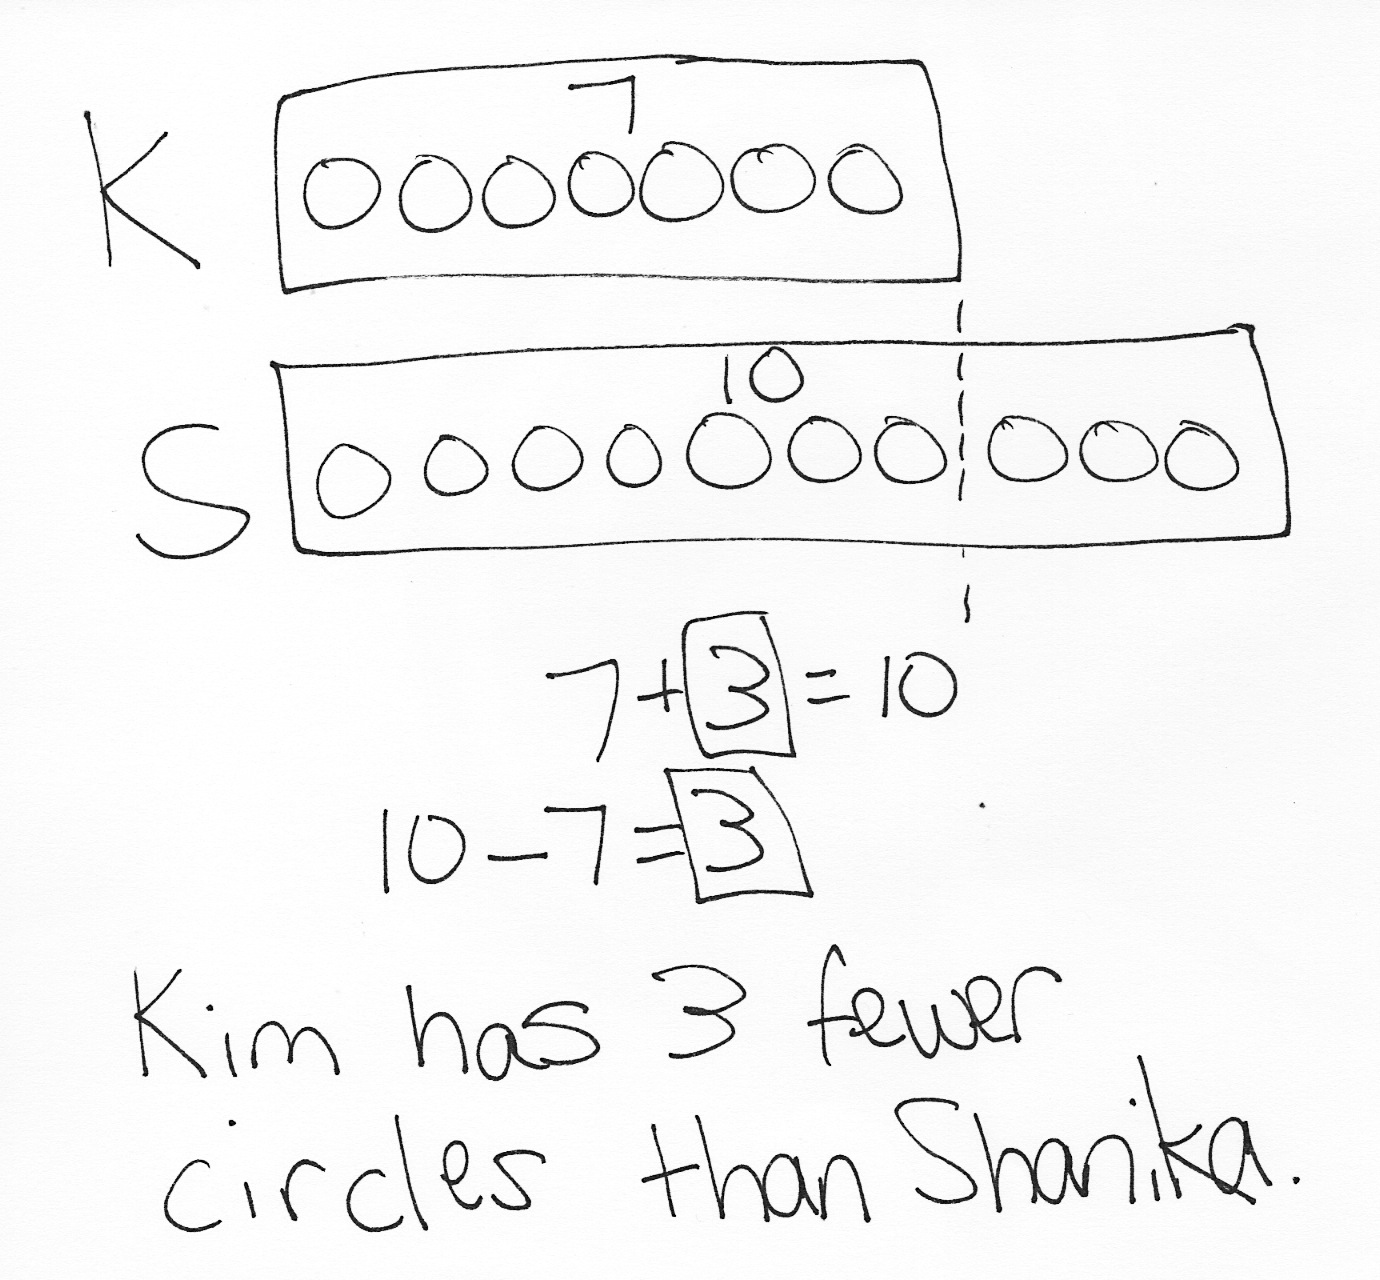 K
7
S
10
7+3=10
10-7=3
Kim has 3 fewer
circles than Shanika.